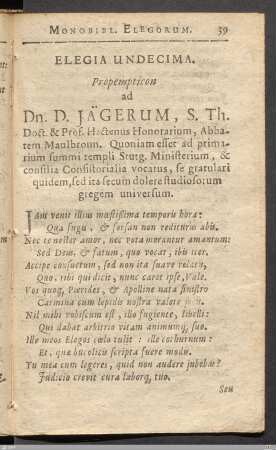 MONOBIBL. ELEGORUM. 39
ELEGIA UNDECIMA.
Propempticon
ad
Dn. D. JÄGERUM, S. Th.
Doct. & Prof. Hactenus Honorarium, Abba-
tem Maulbronn. Quoniam esset ad prima-
rium summi templi Stutg. Ministerium, &
consilia Consistorialia vocatus, se gratulari
quidem, sed ita secum dolere studiosorum
gregem universum.
JAm venit illius mœstissima temporis hora:
Qua fugis, & forsan non rediturus abis.
Nec te noster amor, nec vota morantur amantum:
Sed Deus, & fatum, quo vocat, ibis iter.
Accipe consuetum, sed non ita suave relatu,
Quod tibi qui dicit, nunc caret ipse, Vale.
Vos quoq, Pierides, & Apolline nata sinistro
Carmina cum lepidis nostra valete
Nil mihi vobiscum est, illo fugiente, libelli:
Qui dabat arbitrio vitam animumq, suo.
Ille meos Elegos cœlo tulit: ille cothurnum:
Et, quæ bucolicis scripta fuere modis.
Tu mea cum legeres, quid non audere jubebar?
Judicio crevit cura laborq, tuo.
Seu